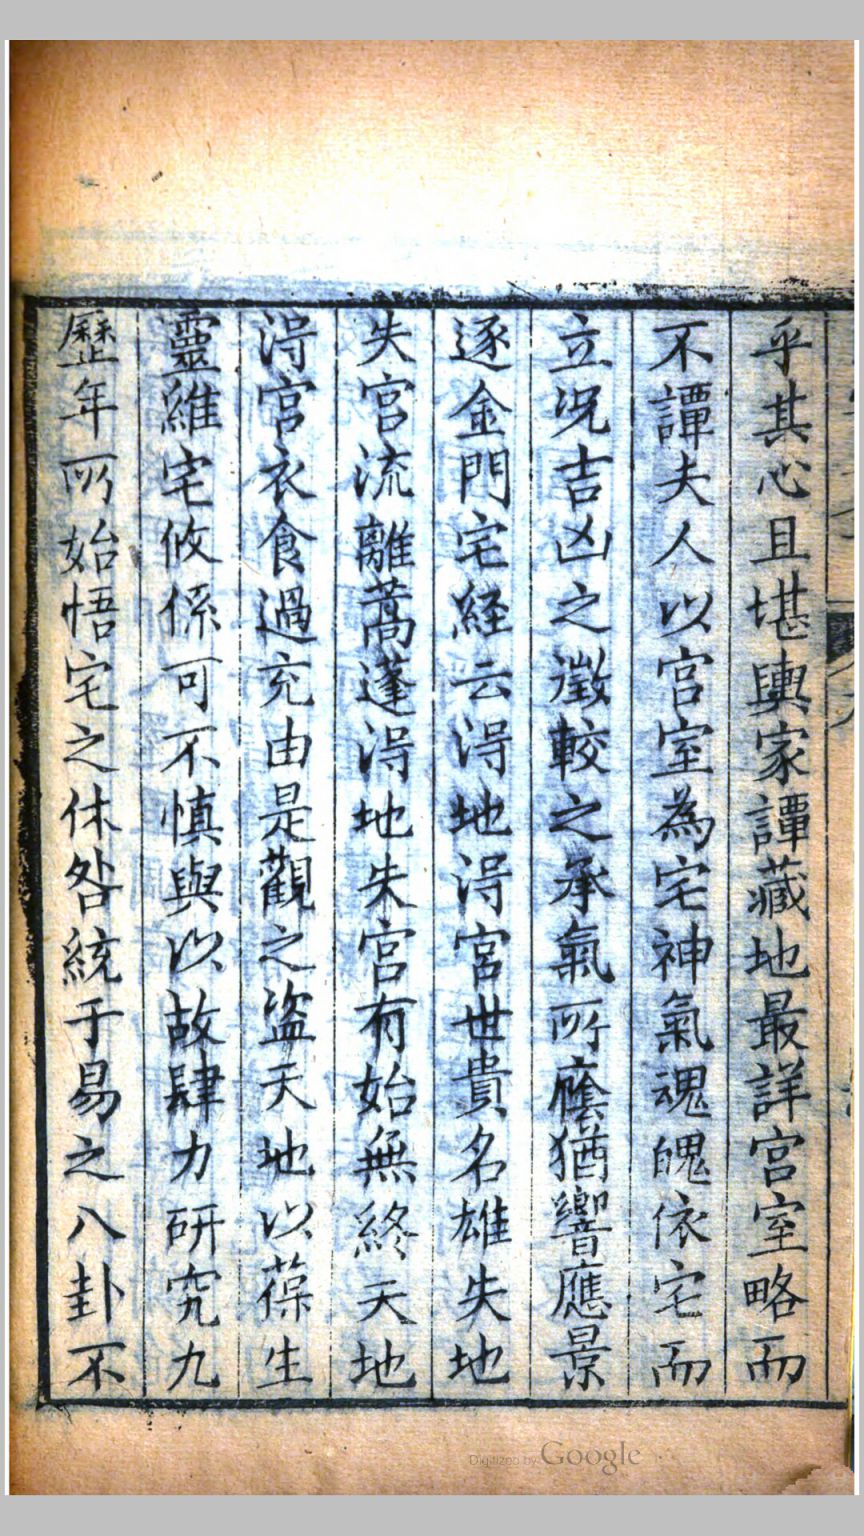 乎其心且堪輿家譚藏地最詳宫室略而
不譚夫人以宫室為宅神氣魂魄依宅而
立况吉凶之徵較之承氣所廕猶響應景
逐金門宅経云淂地淂宫世貴名雄失地
失宫流離蒿蓬淂地失宫有始無終天地
淂宫衣食過充由是觀之盜天地以葆生
靈維宅攸係可不慎與以故肆力研究九
歷年所始悟宅之休咎統于易之八卦不
Digitized by Google